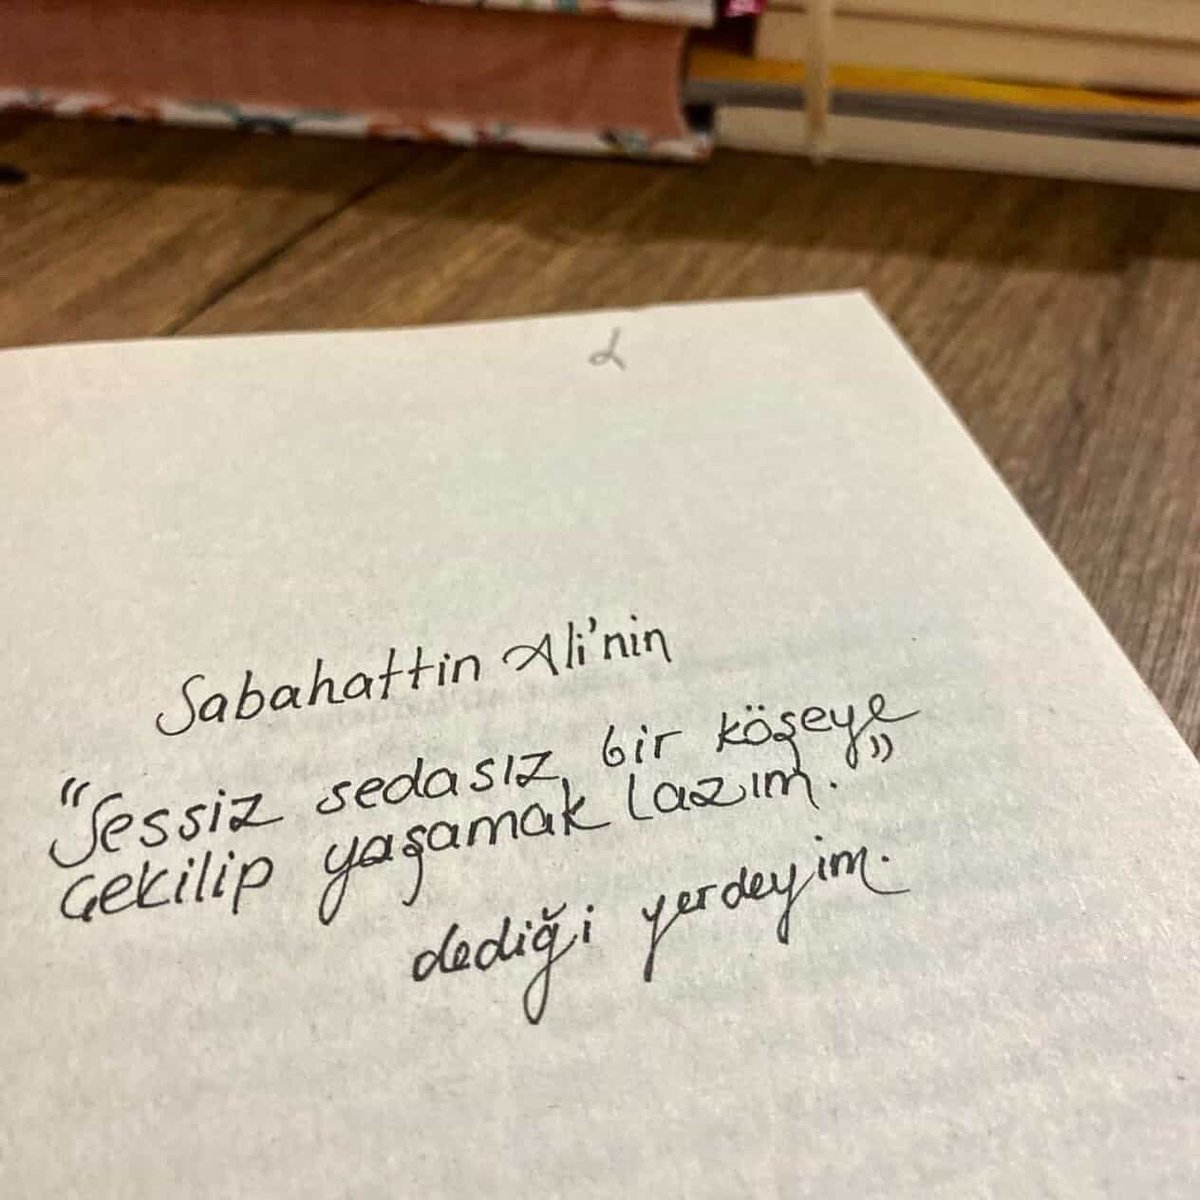 Sabahattin Ali'nin
"Sessiz sedasız, bir köşeye
çekilip yaşamak lazım."
dediği yerdeyim.